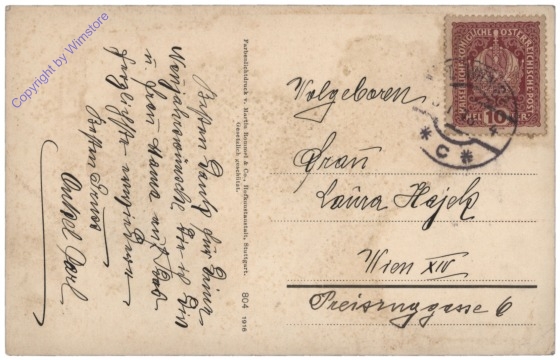 Besten Dank für Deine
Neujahrswünsche die ich Dir
u Deiner Mama auf das
herzlichste
Besten Gruss
Onkel Karl
Farbenlichtdruck v. Martin Rommel & Co., Hofkunstanstalt, Stuttgart.
Gesetzlich geschützt.
804 1916
Wolgeboren
Frau
Laura Hajek
Wien XIV
Preisinggasse 6
KAISERLICHE KÖNIGLICHE ÖSTERREICHISCHE POST
HELLER 10 HELLER
* C *
Copyright by Wimstore